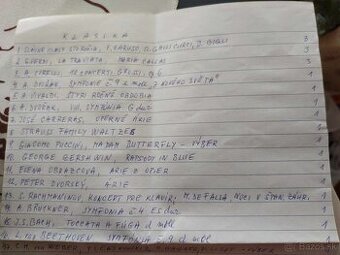 KLASIKA
1. SLÁVNE HLASY STOROČIA, E. CARUSO, GALLI CURCI, B. GIGLI 3
2. G. VERDI, LA TRAVIATA, MARIA CALLAS 3
3. A. CORELLI, 12 CONCERTI GROSSI, op. 6 3
4. A. DVOŘÁK, SYMFÓNIA č. 9 e mol, Z NOVÉHO SVETA" 1
5. A. VIVALDI, ŠTYRI ROČNÉ OBDOBIA 1
6. A. DVOŘÁK, VIII. SYMFÓNIA G dur 1
7. JOSÉ CARRERAS, OPERNÉ ARIE 1
8. STRAUSS FAMILY WALTZES 1
9. GIACOMO PUCCINI, MADAM BUTTERFLY - VÝBER 1
10. GEORGE GERSHWIN, RAPSODY IN BLUE 1
11. ELENA OBRAZCOVA, ARIE Z OPIER 1
12. PETER DVORSKÝ, ARIE 1
13. S. RACHMANINOV, KONCERT PRE KLAVÍR, M. DE FALLA, NOCI V ŠPAN. ZÁHR. 1
14. A. BRUCKNER, SYMFÓNIA č. 4 Es dur 1
15. J.S. BACH, TOCCATA A FÚGA d mol 1
16. L. van BEETHOVEN SYMFÓNIA č. 9 d mol 1